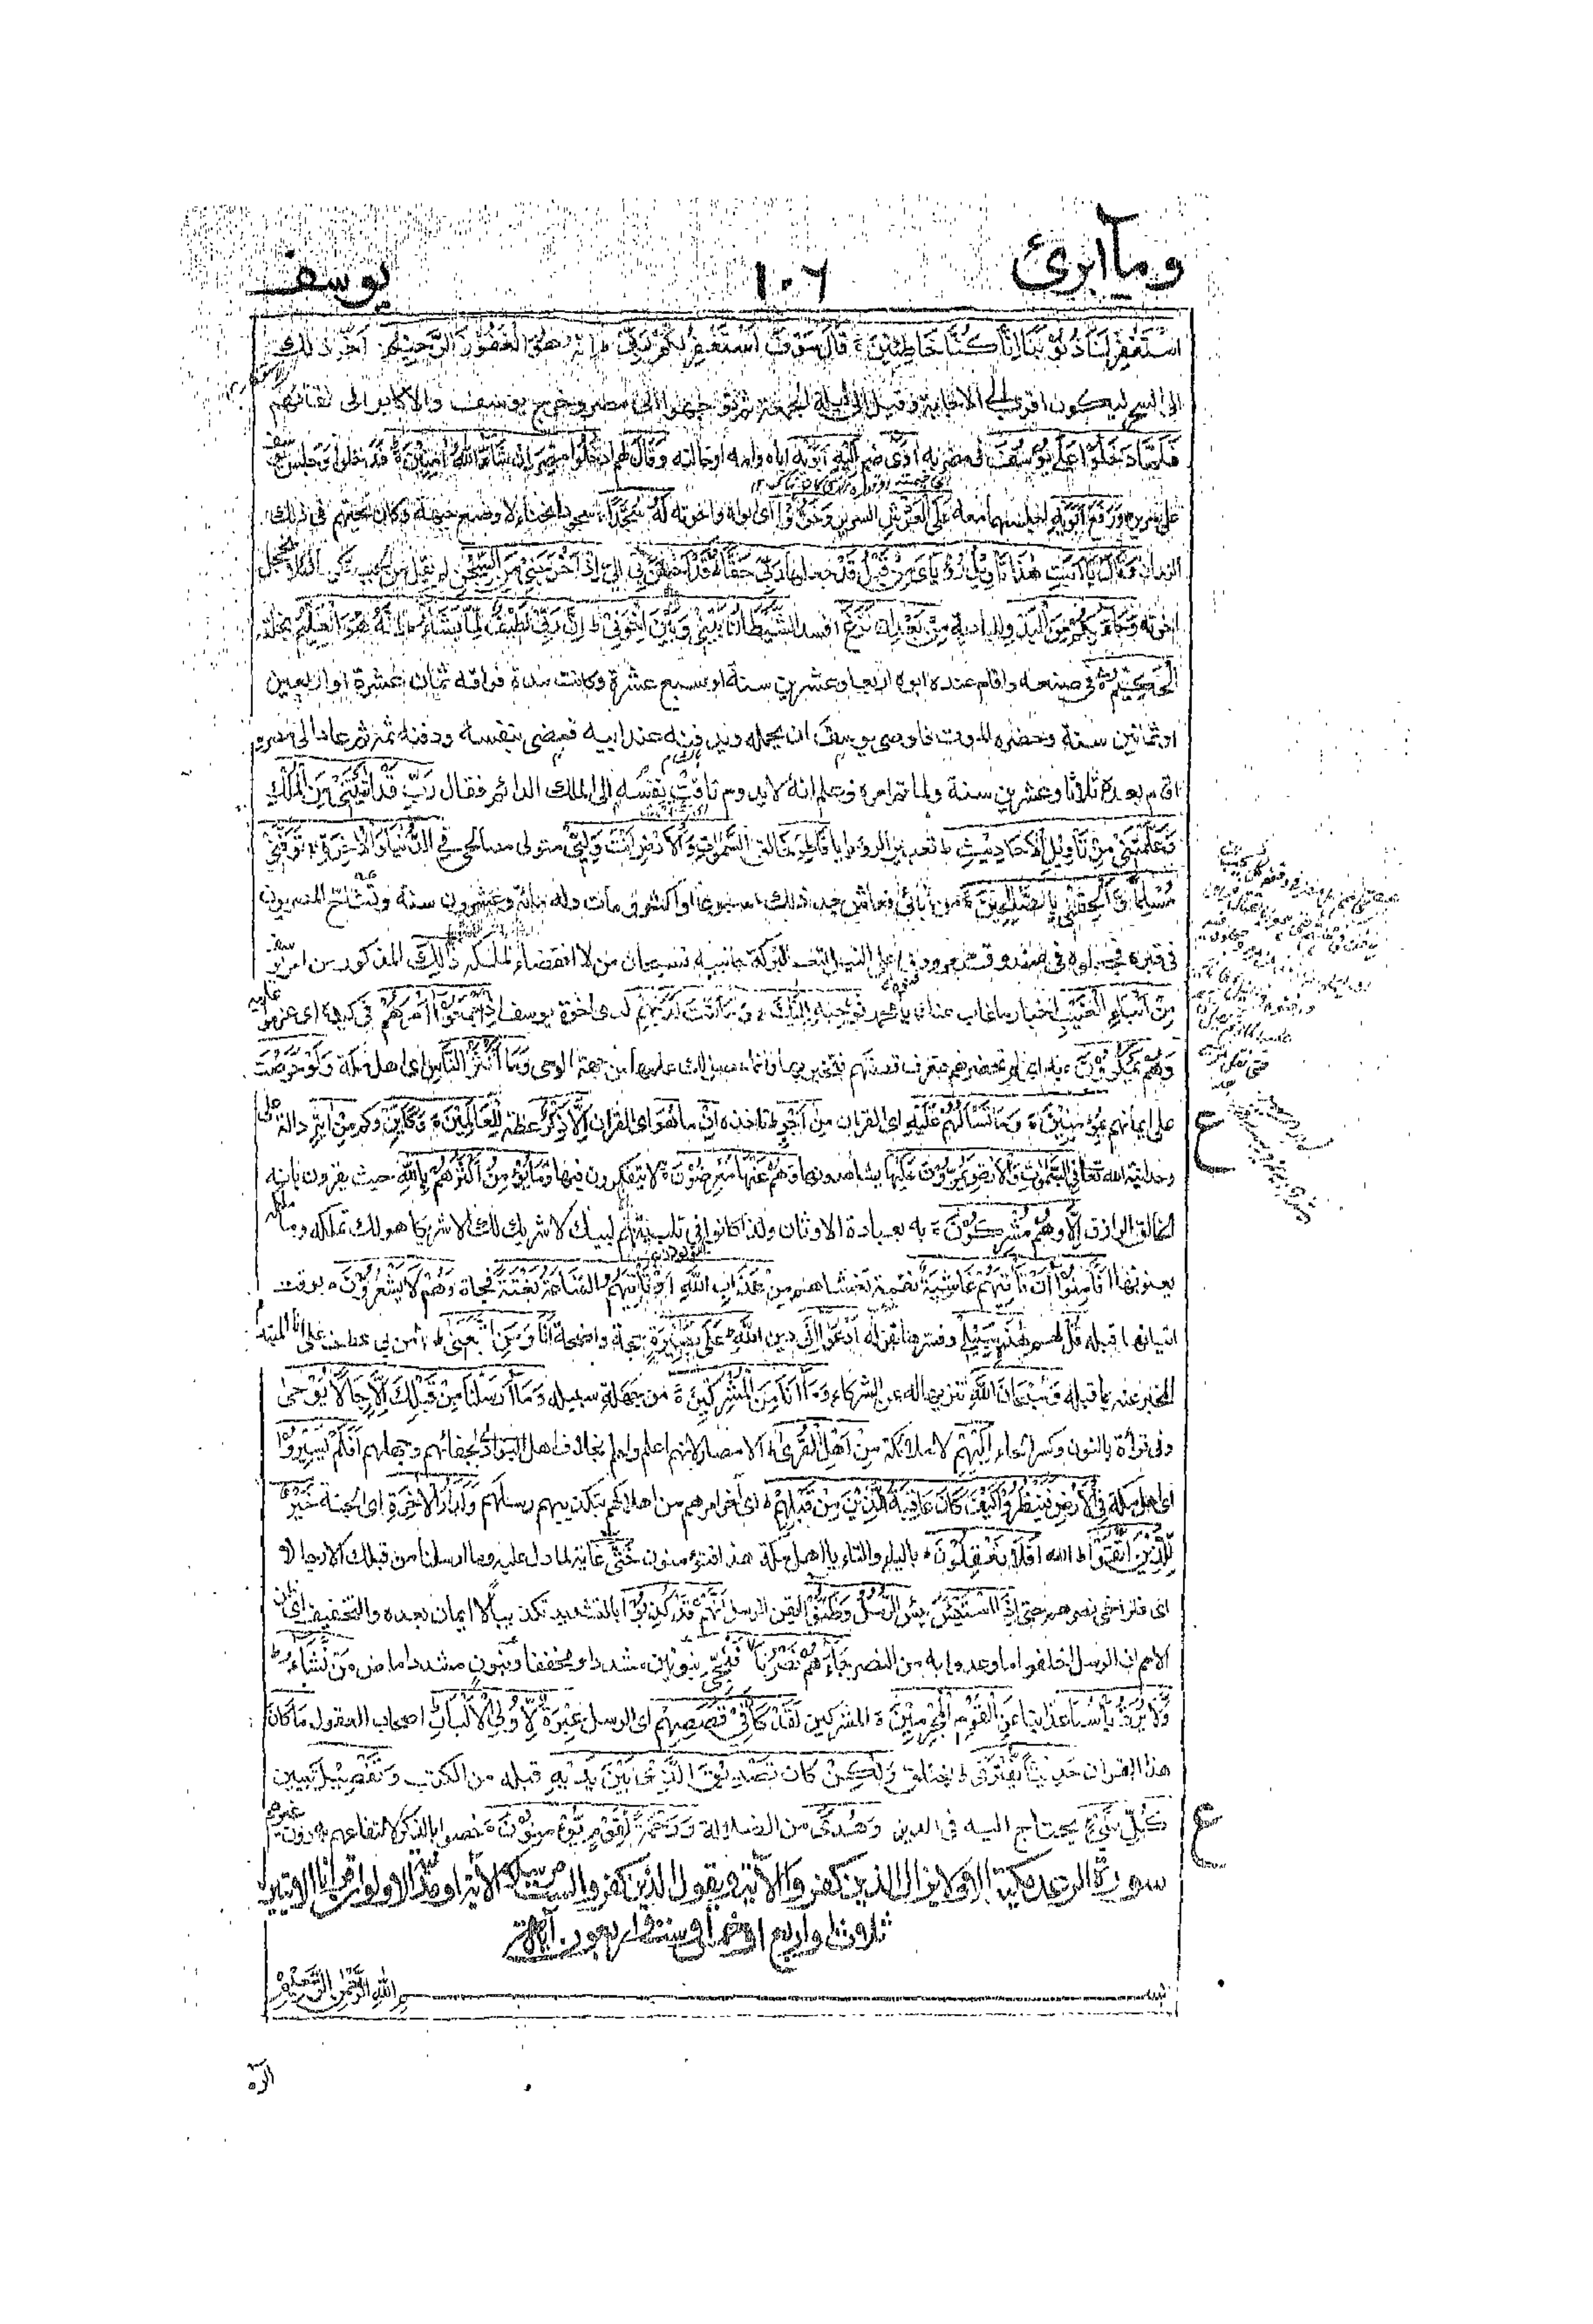 وما أبرئ ١٠٦ يوسف
اسْتَغْفِرْ لَنَا ذُنُوْبَنَا اِنَّا كُنَّا خَاطِئِيْنَ قَالَ سَوْفَ اَسْتَغْفِرُ لَكُمْ رَبِّيْ اِنَّهٗ هُوَ الْغَفُوْرُ الرَّحِيْمُ اخر ذلك
الى السحر ليكون اقرب الى الاجابة وقيل الى ليلة الجمعة ثم توجهوا الى مصر وخرج يوسف والاكابر الى لقائهم
فَلَمَّا دَخَلُوْا عَلٰى يُوْسُفَ فى مضربه اٰوٰى ضم اِلَيْهِ اَبَوَيْهِ اباه وامه او خالته وَقَالَ لهم ادْخُلُوْا مِصْرَ اِنْ شَاءَ اللهُ اٰمِنِيْنَ فدخلوا وجلس يوسف
على سريره وَرَفَعَ اَبَوَيْهِ اجلسهما معه عَلَى الْعَرْشِ السرير وَخَرُّوْا اى ابواه واخوته لَهٗ سُجَّدًا سجود انحناء لا وضع جبهة وكان تحيتهم فى ذلك
الزمان وَقَالَ يٰاَبَتِ هٰذَا تَاْوِيْلُ رُؤْيَايَ مِنْ قَبْلُ قَدْ جَعَلَهَا رَبِّيْ حَقًّا وَقَدْ اَحْسَنَ بِيْ الىّ اِذْ اَخْرَجَنِيْ مِنَ السِّجْنِ لم يقل من الجب تكرما لئلا يخجل
اخوته وَجَاءَ بِكُمْ مِنَ الْبَدْوِ البادية مِنْ بَعْدِ اَنْ نَزَغَ افسد الشَّيْطَانُ بَيْنِيْ وَبَيْنَ اِخْوَتِيْ اِنَّ رَبِّيْ لَطِيْفٌ لِمَا يَشَاءُ اِنَّهٗ هُوَ الْعَلِيْمُ بخلقه
الْحَكِيْمُ فى صنعه واقام عنده ابوه اربعا وعشرين سنة او سبع عشرة وكانت مدة فراقه ثمان عشرة او اربعين
او ثمانين سنة وحضره الموت فاوصى يوسف ان يحمله ويدفنه عند ابيه فمضى بنفسه ودفنه ثمه ثم عاد الى مصر و
اقام بعده ثلاثا وعشرين سنة ولما تم امره وعلم انه لا يدوم تاقت نفسه الى الملك الدائم فقال رَبِّ قَدْ اٰتَيْتَنِيْ مِنَ الْمُلْكِ
وَعَلَّمْتَنِيْ مِنْ تَاْوِيْلِ الْاَحَادِيْثِ تعبير الرؤيا فَاطِرَ خالق السَّمٰوٰتِ وَالْاَرْضِ اَنْتَ وَلِيّٖ متولى مصالحى فِي الدُّنْيَا وَالْاٰخِرَةِ تَوَفَّنِيْ
مُسْلِمًا وَّاَلْحِقْنِيْ بِالصّٰلِحِيْنَ من اٰبائى فعاش بعد ذلك اسبوعا او اكثر ومات وله مائة وعشرون سنة وتشاح المصريون
فى قبره فجعلوه فى صندوق مرمر ودفنوه فى اعلى النيل لتعم البركة جانبيه فسبحان من لا انقضاء لملكه ذٰلِكَ المذكور من امر يوسف
مِنْ اَنْبَاءِ الْغَيْبِ اخبار ما غاب عنك يا محمد نُوْحِيْهِ اِلَيْكَ وَمَا كُنْتَ لَدَيْهِمْ لدى اخوة يوسف اِذْ اَجْمَعُوْا اَمْرَهُمْ فى كيده اى عزموا عليه
وَهُمْ يَمْكُرُوْنَ به اى لم تحضرهم فتعرف قصتهم فتخبر بها وانما حصل لك علمها من جهة الوحى وَمَا اَكْثَرُ النَّاسِ اى اهل مكة وَلَوْ حَرَصْتَ
على ايمانهم بِمُؤْمِنِيْنَ وَمَا تَسْاَلُهُمْ عَلَيْهِ اى القران مِنْ اَجْرٍ تاخذه اِنْ ما هُوَ اى القران اِلَّا ذِكْرٌ عظة لِلْعٰلَمِيْنَ وَكَاَيِّنْ وكم مِنْ اٰيَةٍ دالة على
وحدانية الله تعالى فِي السَّمٰوٰتِ وَالْاَرْضِ يَمُرُّوْنَ عَلَيْهَا يشاهدونها وَهُمْ عَنْهَا مُعْرِضُوْنَ لا يتفكرون فيها وَمَا يُؤْمِنُ اَكْثَرُهُمْ بِاللهِ حيث يقرون بانه
الخالق الرازق اِلَّا وَهُمْ مُشْرِكُوْنَ به بعبادة الاوثان ولذا كانوا فى تلبيتهم لبيك لا شريك لك الا شريكا هو لك تملكه وما ملك
يعنونها اَفَاَمِنُوْا اَنْ تَاْتِيَهُمْ غَاشِيَةٌ نقمة تغشاهم مِنْ عَذَابِ اللهِ اَوْ تَاْتِيَهُمُ السَّاعَةُ بَغْتَةً فجاة وَهُمْ لَا يَشْعُرُوْنَ بوقت
اتيانها قبله قُلْ لهم هٰذِهٖ سَبِيْلِيْ وفسرها بقوله اَدْعُوْا اِلٰى دين اللهِ عَلٰى بَصِيْرَةٍ حجة واضحة اَنَا وَمَنِ اتَّبَعَنِيْ اٰمن بى عطف على انا المبتدأ
المخبر عنه بما قبله وَسُبْحَانَ اللهِ تنزيها له عن الشركاء وَمَا اَنَا مِنَ الْمُشْرِكِيْنَ من جملة سبيله وَمَا اَرْسَلْنَا مِنْ قَبْلِكَ اِلَّا رِجَالًا يُوْحٰى
وفى قراءة بالنون وكسر الحاء اِلَيْهِمْ لا ملائكة مِنْ اَهْلِ الْقُرٰى الامصار لانهم اعلم واحلم بخلاف اهل البوادى لجفائهم وجهلهم اَفَلَمْ يَسِيْرُوْا
اى اهل مكة فِي الْاَرْضِ فَيَنْظُرُوْا كَيْفَ كَانَ عَاقِبَةُ الَّذِيْنَ مِنْ قَبْلِهِمْ اى اٰخر امرهم من اهلاكهم بتكذيبهم رسلهم وَلَدَارُ الْاٰخِرَةِ اى الجنة خَيْرٌ
لِلَّذِيْنَ اتَّقَوْا الله اَفَلَا تَعْقِلُوْنَ بالياء والتاء يا اهل مكة هذا فتؤمنون حَتّٰى غاية لما دل عليه وما ارسلنا من قبلك الا رجالا
اى فتراخى نصرهم حتى اِذَا اسْتَيْئَسَ يئس الرُّسُلُ وَظَنُّوْا ايقن الرسل اَنَّهُمْ قَدْ كُذِبُوْا بالتشديد تكذيبا لا ايمان بعده والتخفيف اى ظن
الامم ان الرسل اخلفوا ما وعدوا به من النصر جَاءَهُمْ نَصْرُنَا فَنُنْجِيْ بنونين مشددا ومخففا وبنون مشددا ماض مَنْ نَشَاءُ
وَلَا يُرَدُّ بَاْسُنَا عذابنا عَنِ الْقَوْمِ الْمُجْرِمِيْنَ المشركين لَقَدْ كَانَ فِيْ قَصَصِهِمْ اى الرسل عِبْرَةٌ لِّاُولِي الْاَلْبَابِ اصحاب العقول مَا كَانَ
هذا القران حَدِيْثًا يُّفْتَرٰى يختلق وَلٰكِنْ كان تَصْدِيْقَ الَّذِيْ بَيْنَ يَدَيْهِ قبله من الكتب وَتَفْصِيْلَ تبيين
كُلِّ شَيْءٍ يحتاج اليه فى الدين وَهُدًى من الضلالة وَرَحْمَةً لِّقَوْمٍ يُّؤْمِنُوْنَ خصوا بالذكر لانتفاعهم به دون غيرهم
ع
سورة الرعد مكية الا ولا يزال الذين كفروا الآية ويقول الذين كفروا لست مرسلا الآية او مدنية الا ولو ان قرانا الايتين
ثلاث او اربع او خمس او ست واربعون اٰية
بسم اللهِ الرَّحْمٰنِ الرَّحِيْمِ